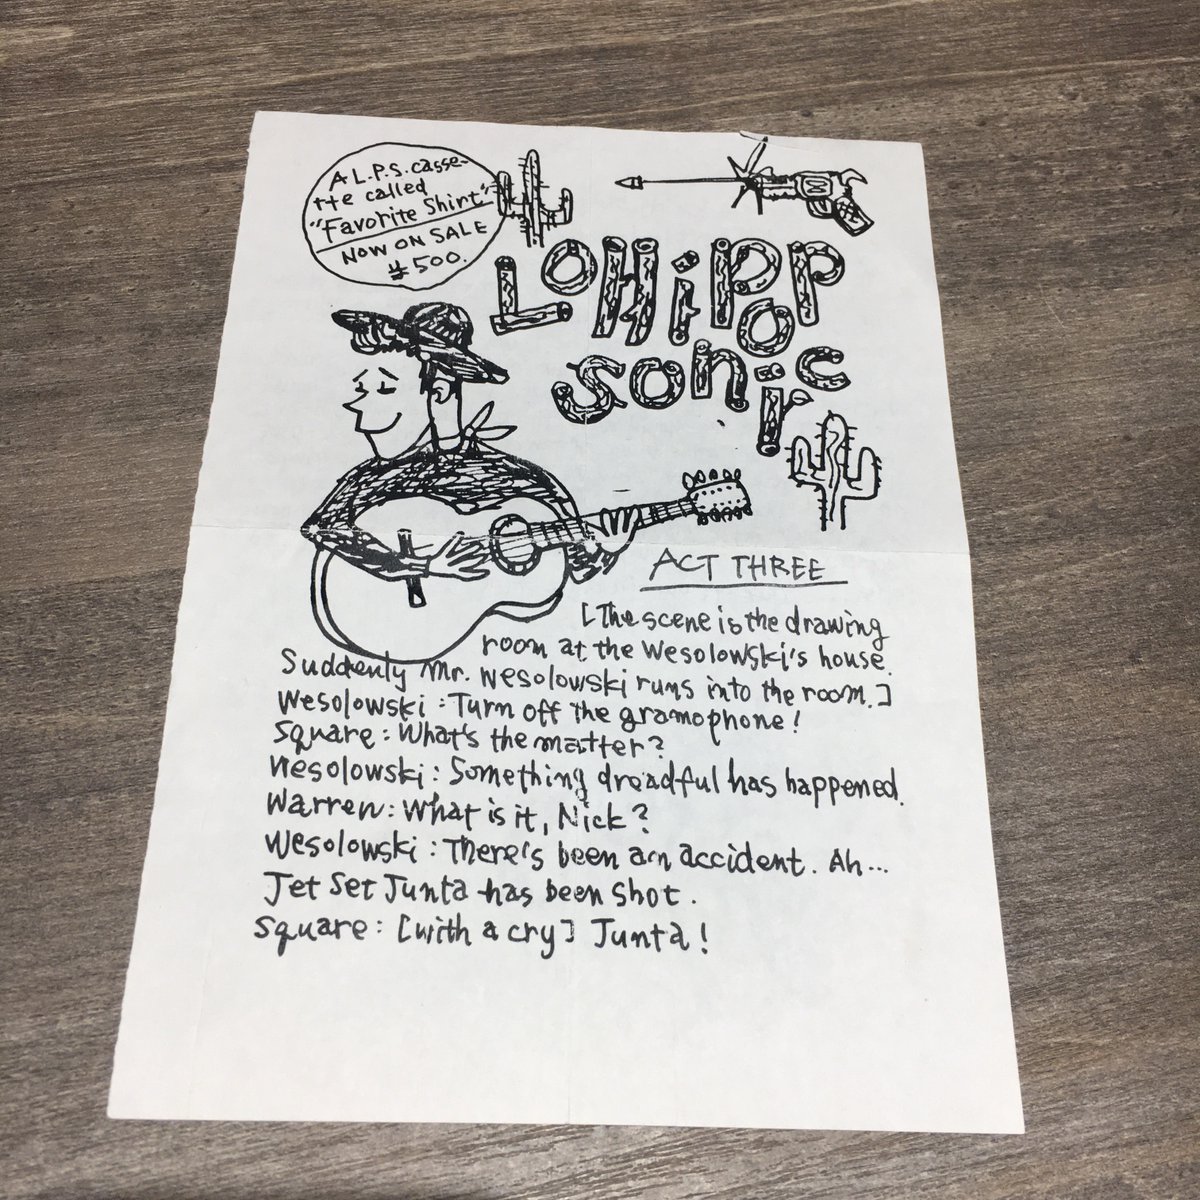 A L.P.S. casse-
tte called
"Favorite Shirt"
NOW ON SALE
¥500.
LoHiPPoP
Sonic
ACT THREE
[The scene is the drawing
room at the Wesolowski's house.
Suddenly Mr. Wesolowski runs into the room.]
Wesolowski : Turn off the gramophone!
Square : What's the matter?
Wesolowski : Something dreadful has happened.
Warren : What is it, Nick?
Wesolowski : There's been an accident. Ah...
Jet Set Junta has been shot.
Square : [with a cry] Junta!